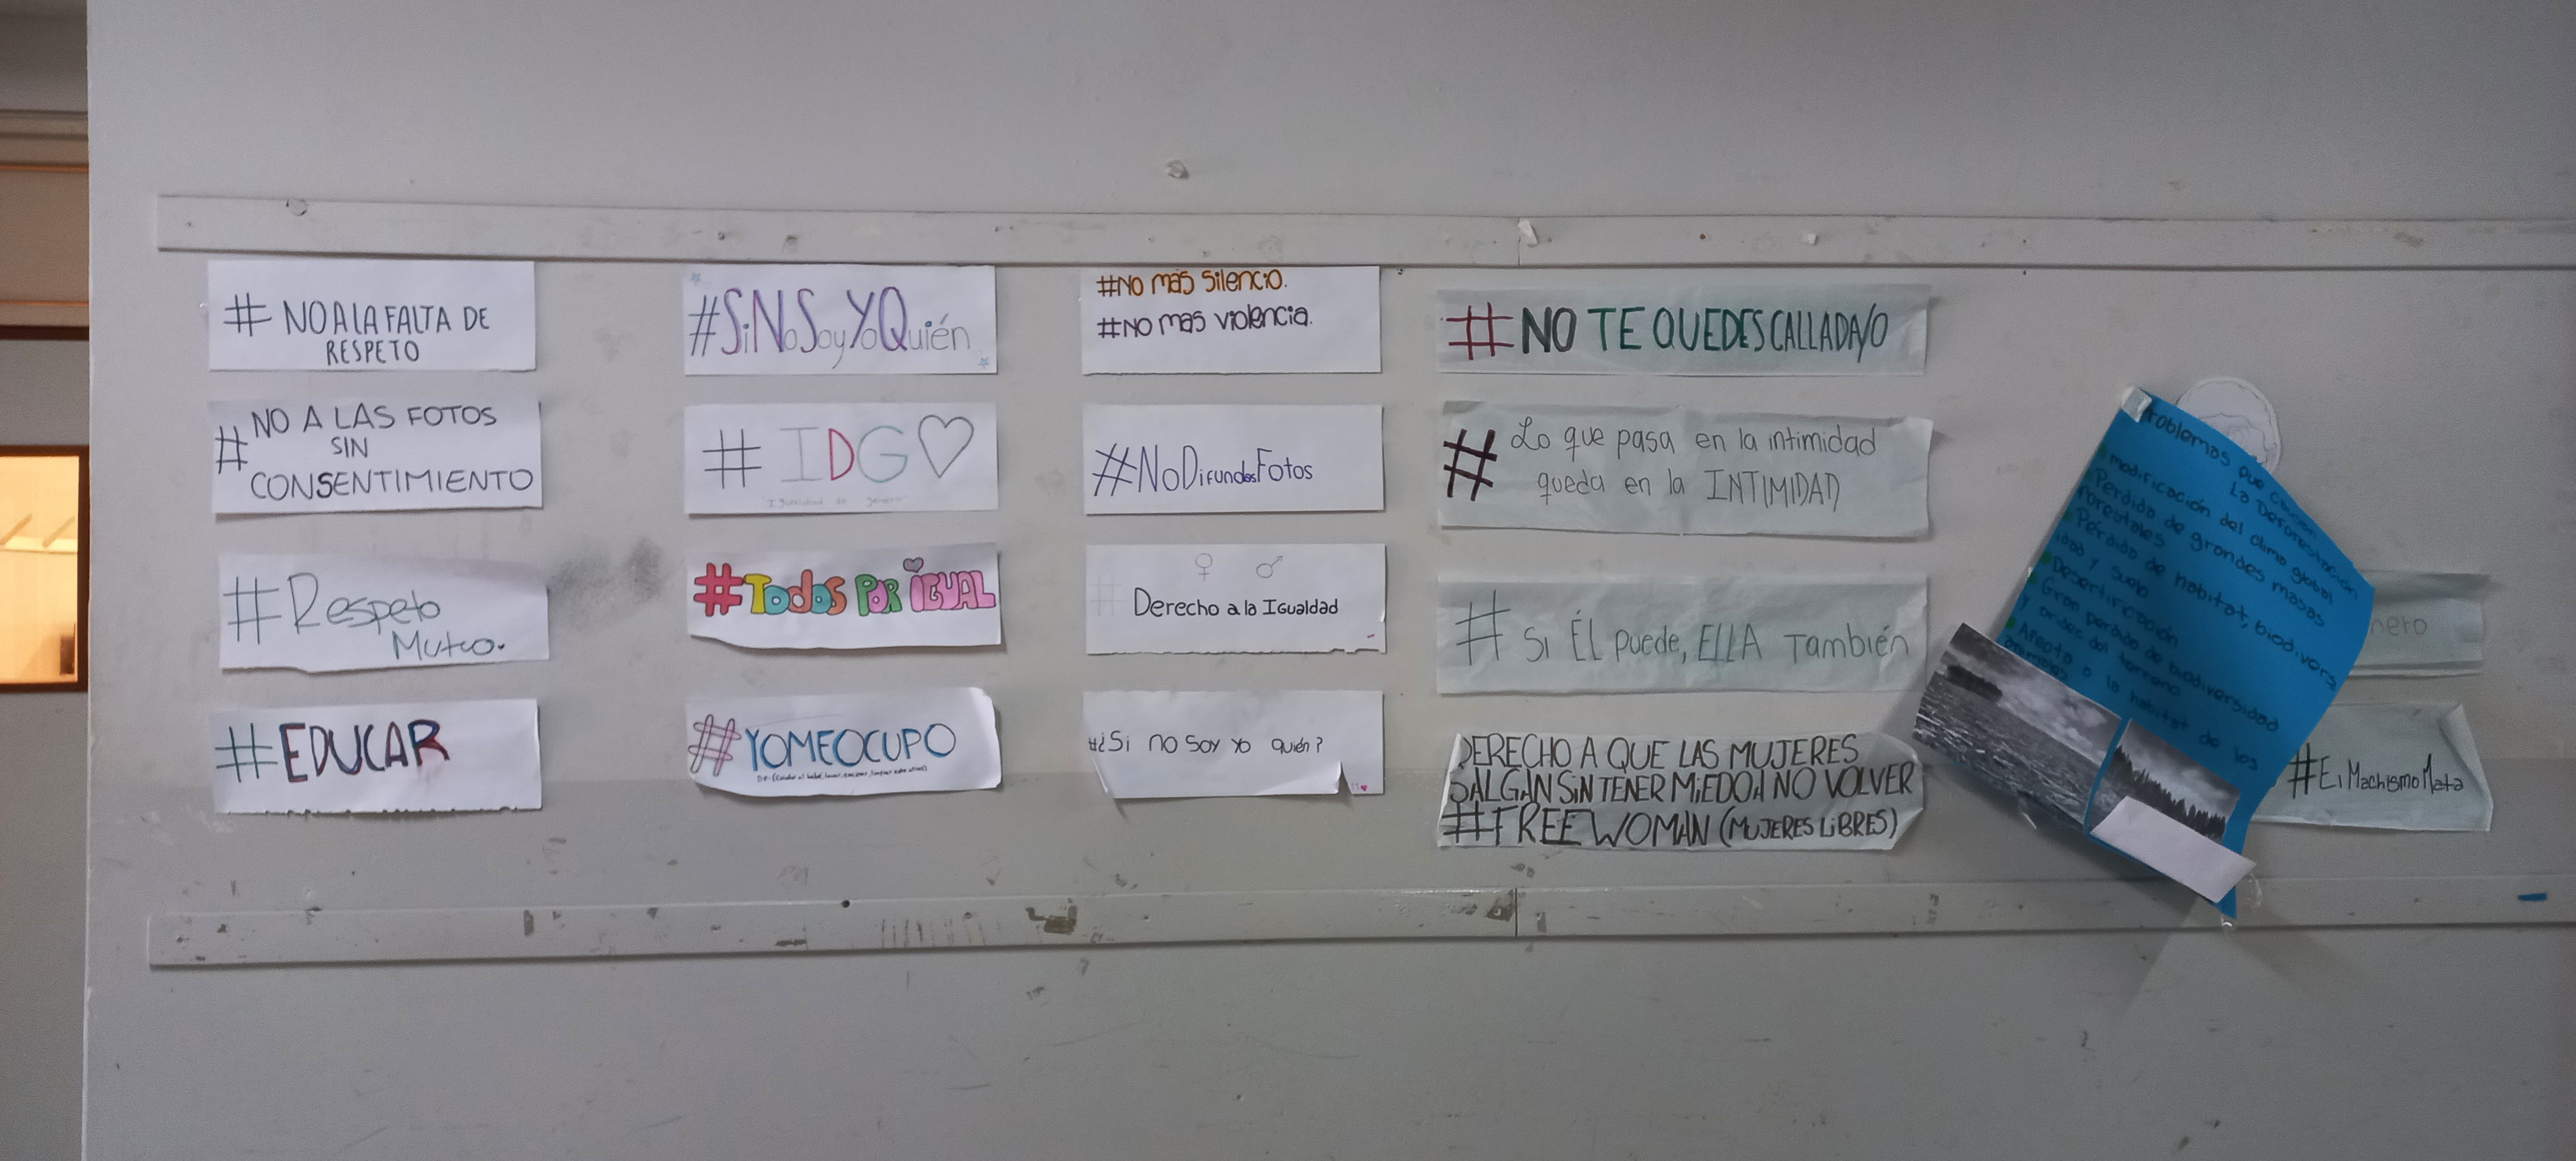 # NO A LA FALTA DE
RESPETO
# NO A LAS FOTOS
SIN
CONSENTIMIENTO
#Respeto
Mutuo.
#EDUCAR
#SiNoSoyYoQuién
# IDG♡
"Igualdad de genero"
#Todos POR iGUAL
#YOMEOCUPO
#No mas silencio.
#No mas violencia.
#NoDifundasFotos
♀ ♂
# Derecho a la Igualdad
#¿Si no soy yo quién?
#NO TE QUEDES CALLADA/O
# Lo que pasa en la intimidad
queda en la INTIMIDAD
# Si ÉL puede, ELLA También
DERECHO A QUE LAS MUJERES
SALGAN SiN TENER MiEDO A NO VOLVER
#FREEWOMAN (MUJERES LiBRES)
Problemas que causan
La Deforestación
modificación del clima global
Perdida de grandes masas
forestales
Pérdida de habitat, biodivers
idad y suelo
Desertificación
Gran perdida de biodiversidad
y aridez del terreno
Afecta a la habitat de los
animales
nero
#ElMachismoMata